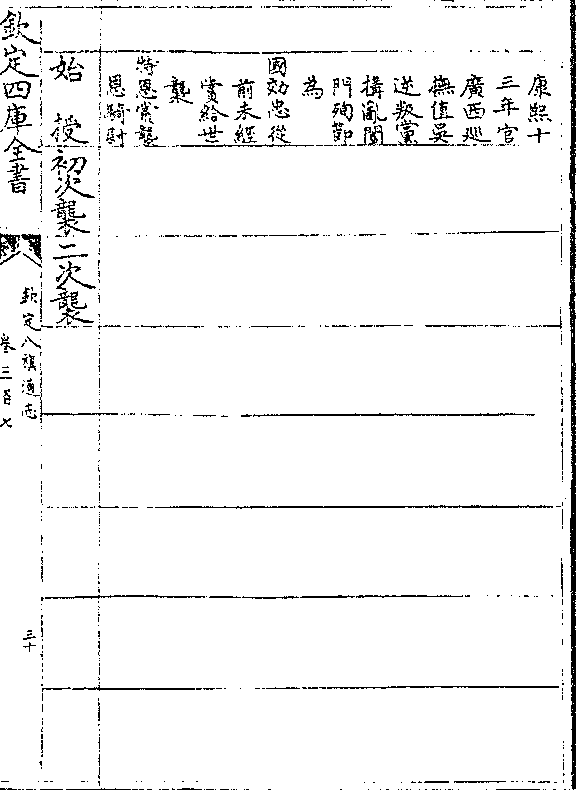 康熙十
三年官
廣西廵
撫值吳
逆叛黨
搆亂闔
門殉節
為
國効忠從
前未經
賞給世
襲
特恩賞襲
恩騎尉
始授
初次襲
二次襲
欽定四庫全書
欽定八旗通志
卷三百七
三十